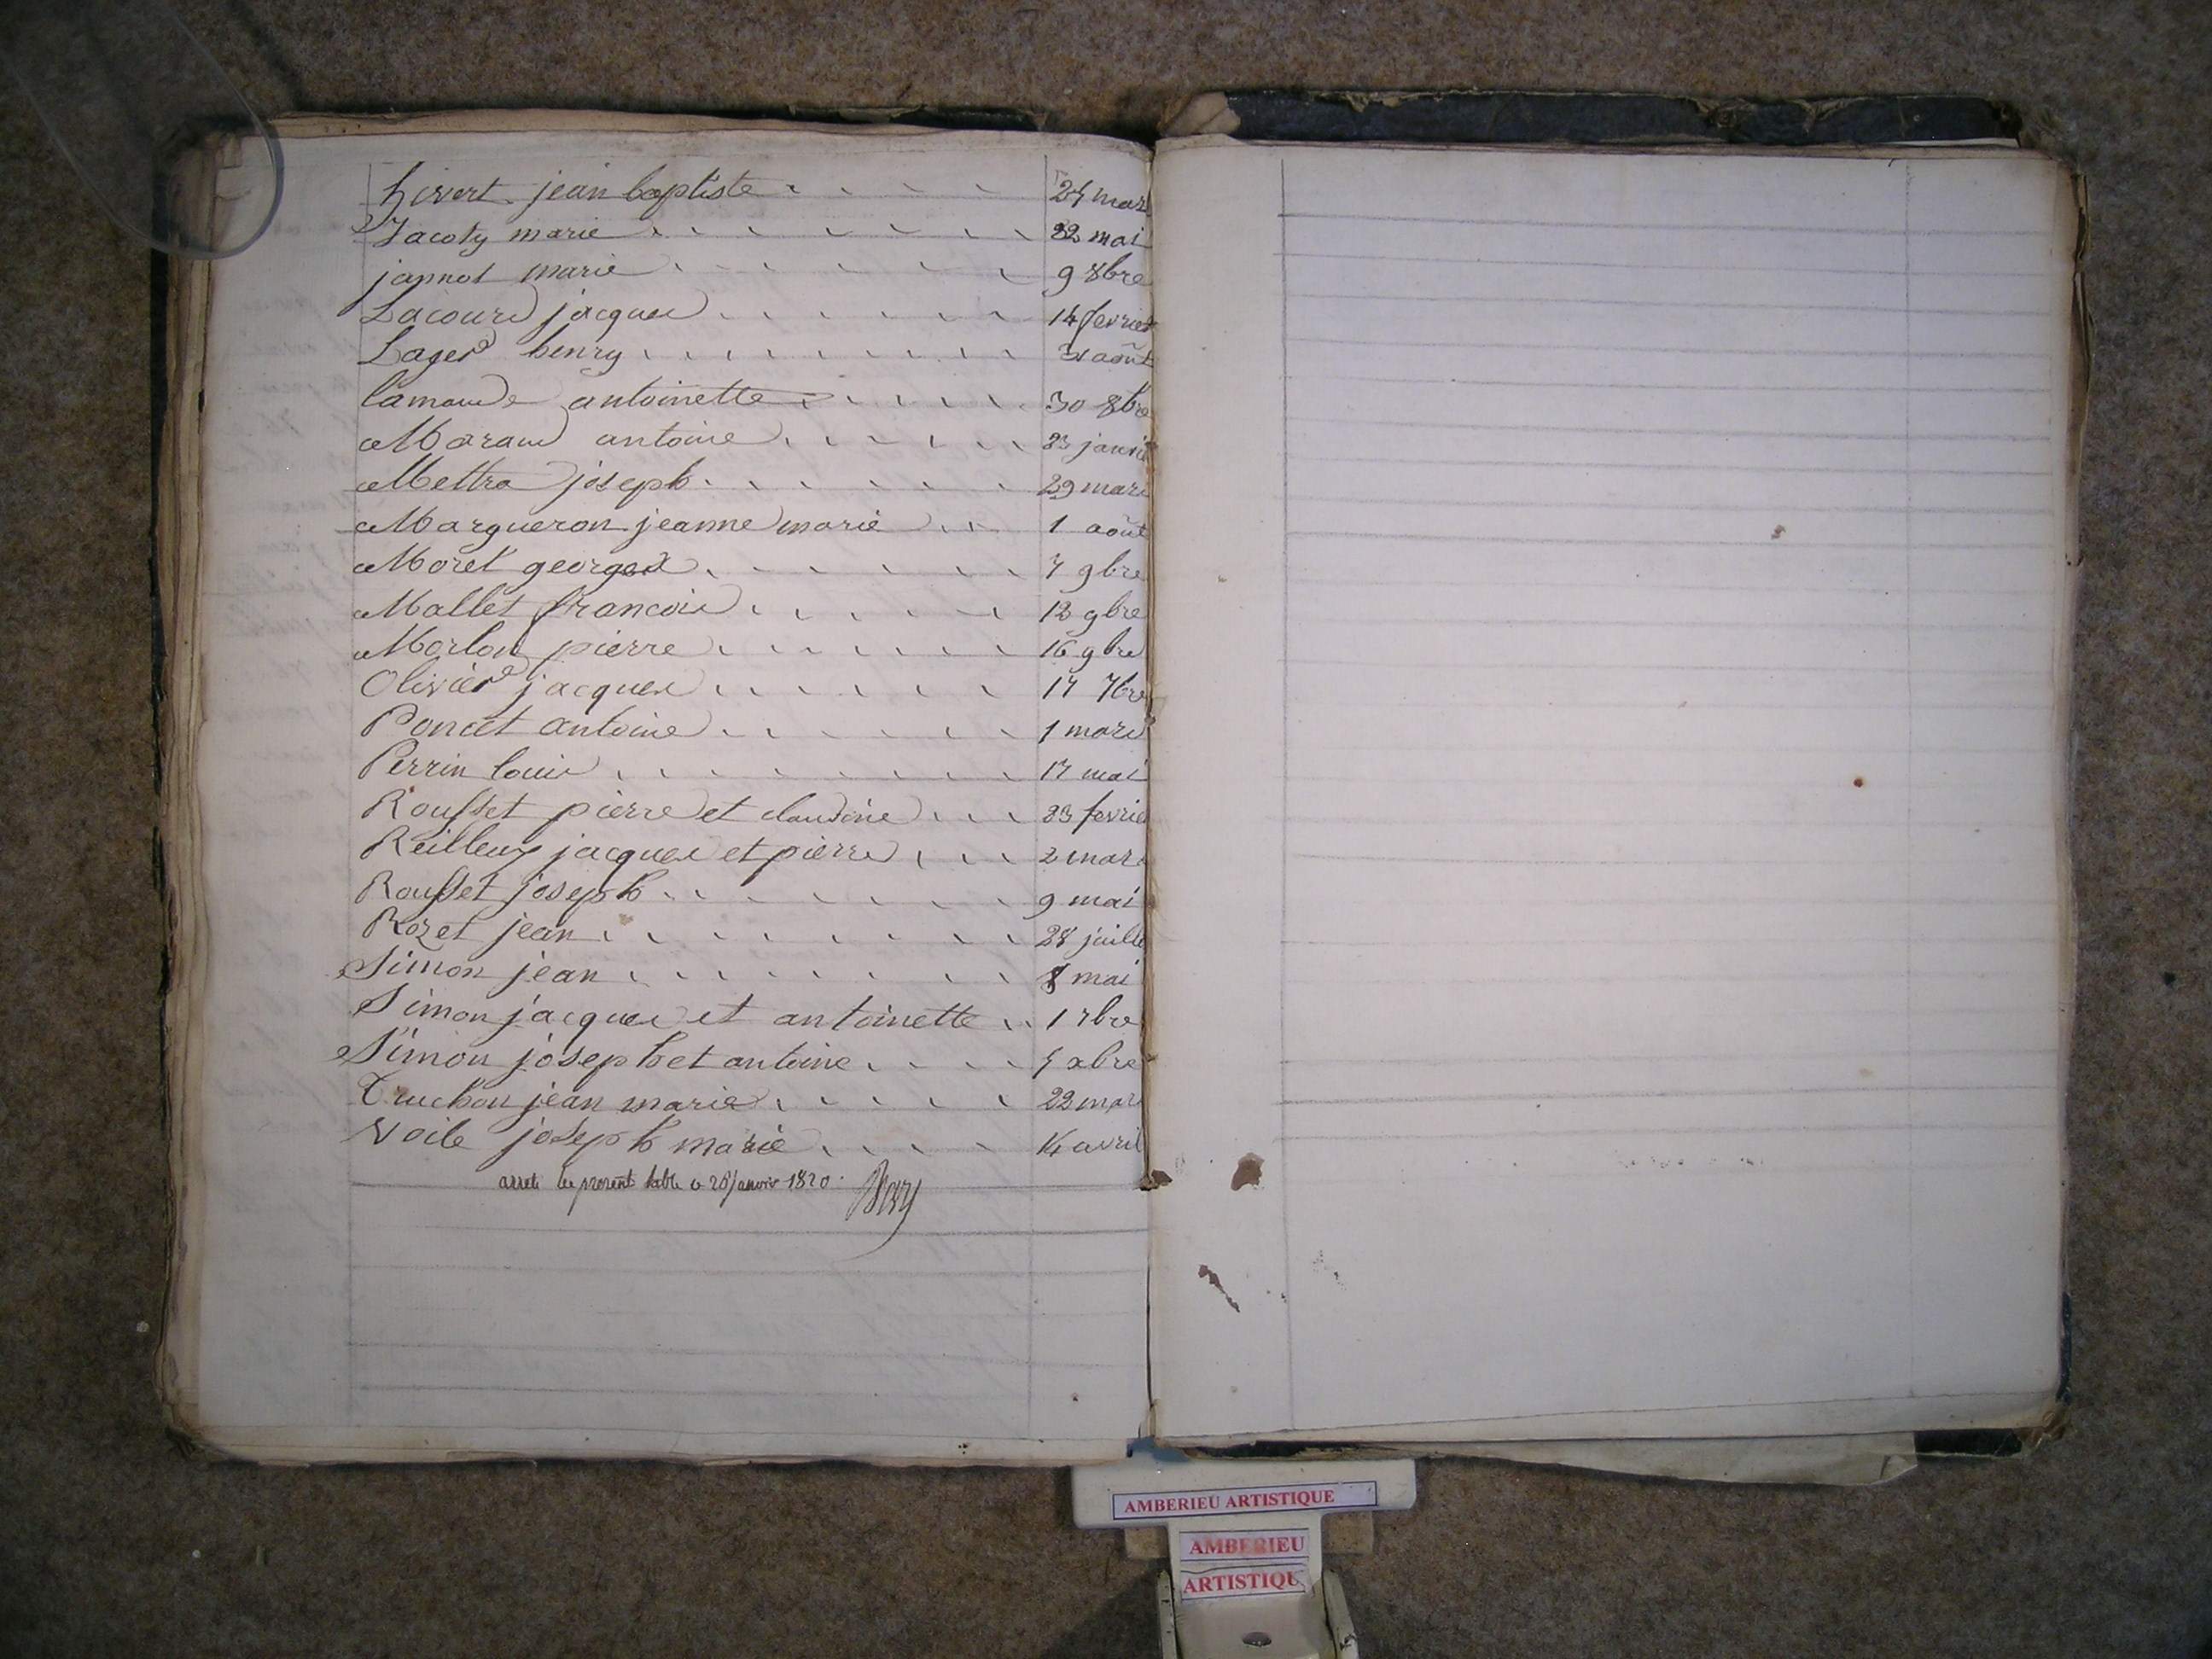 hivert jean baptiste 24 mar
Jacoty marie 22 mai
jannot marie 9 8bre
Lacour jacques 14 fevrier
Lager henry août
lamaude antoinette 30 8bre
Maraud antoine 23 janvi
Mettra joseph 29 mars
Margueron jeanne marie 1 août
Moret georges 7 9bre
Mallet francois 12 9bre
Morlon pierre 16 9bre
Olivier jacques 17 7bre
Poncet antoine 1 mars
Perrin louis 17 mai
Rousset pierre et claudine 23 fevrie
Reilleux jacques et pierre 2 mars
Rousset joseph 9 mai
Rozet jean 28 juille
Simon jean 8 mai
Simon jacques et antoinette 1 7bre
Simon joseph et antoine 5 xbre
Truchon jean marie 22 mar
Voile joseph marie 14 avril
arreté la present table le 26 janvier 1820.
AMBERIEU ARTISTIQUE
AMBERIEU
ARTISTIQU